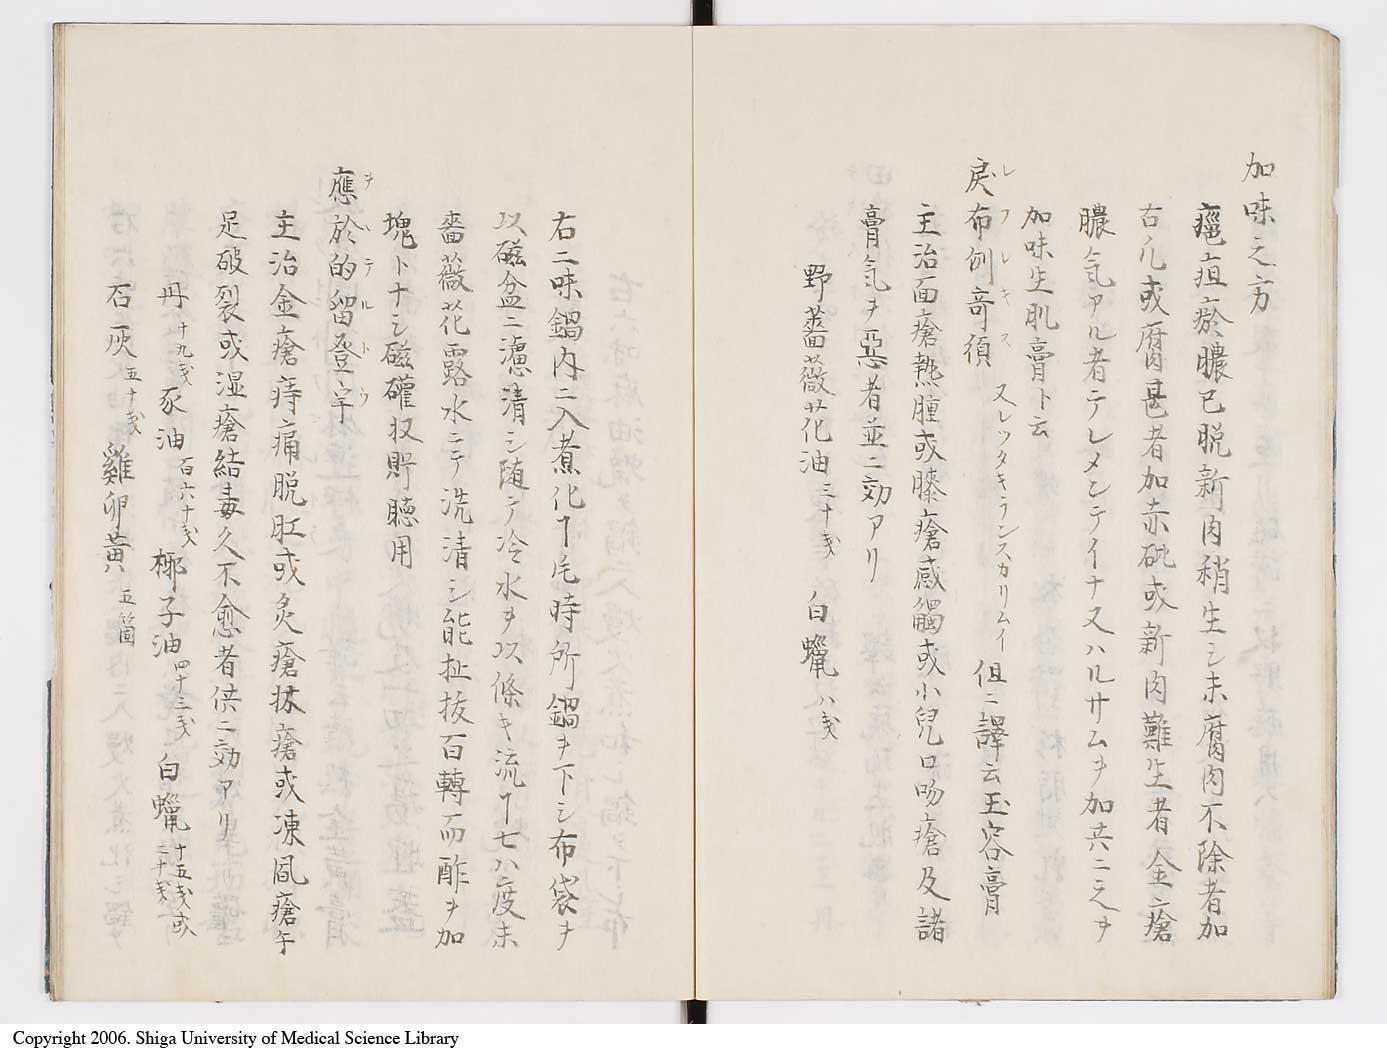 加味之方
瘡疽瘀膿已脱新肉稍生シ未腐肉不除者加
右凡或腐肉甚者加赤砒或新肉難生者金瘡
膿気アル者ニテレメンテイナ又ハルサムヲ加共ニ之ヲ
加味生肌膏ト云
戻布例奇須 レフレキス 又レツタキランスカリムイ 但ニ譯云玉容膏
主治面瘡熱腫或膝瘡感觸或小兒口吻瘡及諸
膏気ヲ惡者並ニ効アリ
野薔薇花油 三十戔 白蠟 八戔
右二味鍋内ニ入煮化丅片時所鍋ヲ下シ布袋ヲ
以磁盆ニ濾清シ随テ冷水ヲ以條キ流丅七八度未
薔薇花露水ニテ洗清シ能扯拔百轉而酢ヲ加
塊トナシ磁礶収貯聴用
應於的留登宇 ヲハテルトウ
主治金瘡痔痛脱肛或灸瘡痳瘡或凍風瘡午
足破裂或湿瘡結毒久不愈者供ニ効アリ
丹 十九戔 豕油 百六十戔 椰子油 四十三戔 白蠟 十五戔或二十戔
石灰 五十戔 雞卵黄 五箇
Copyright 2006. Shiga University of Medical Science Library